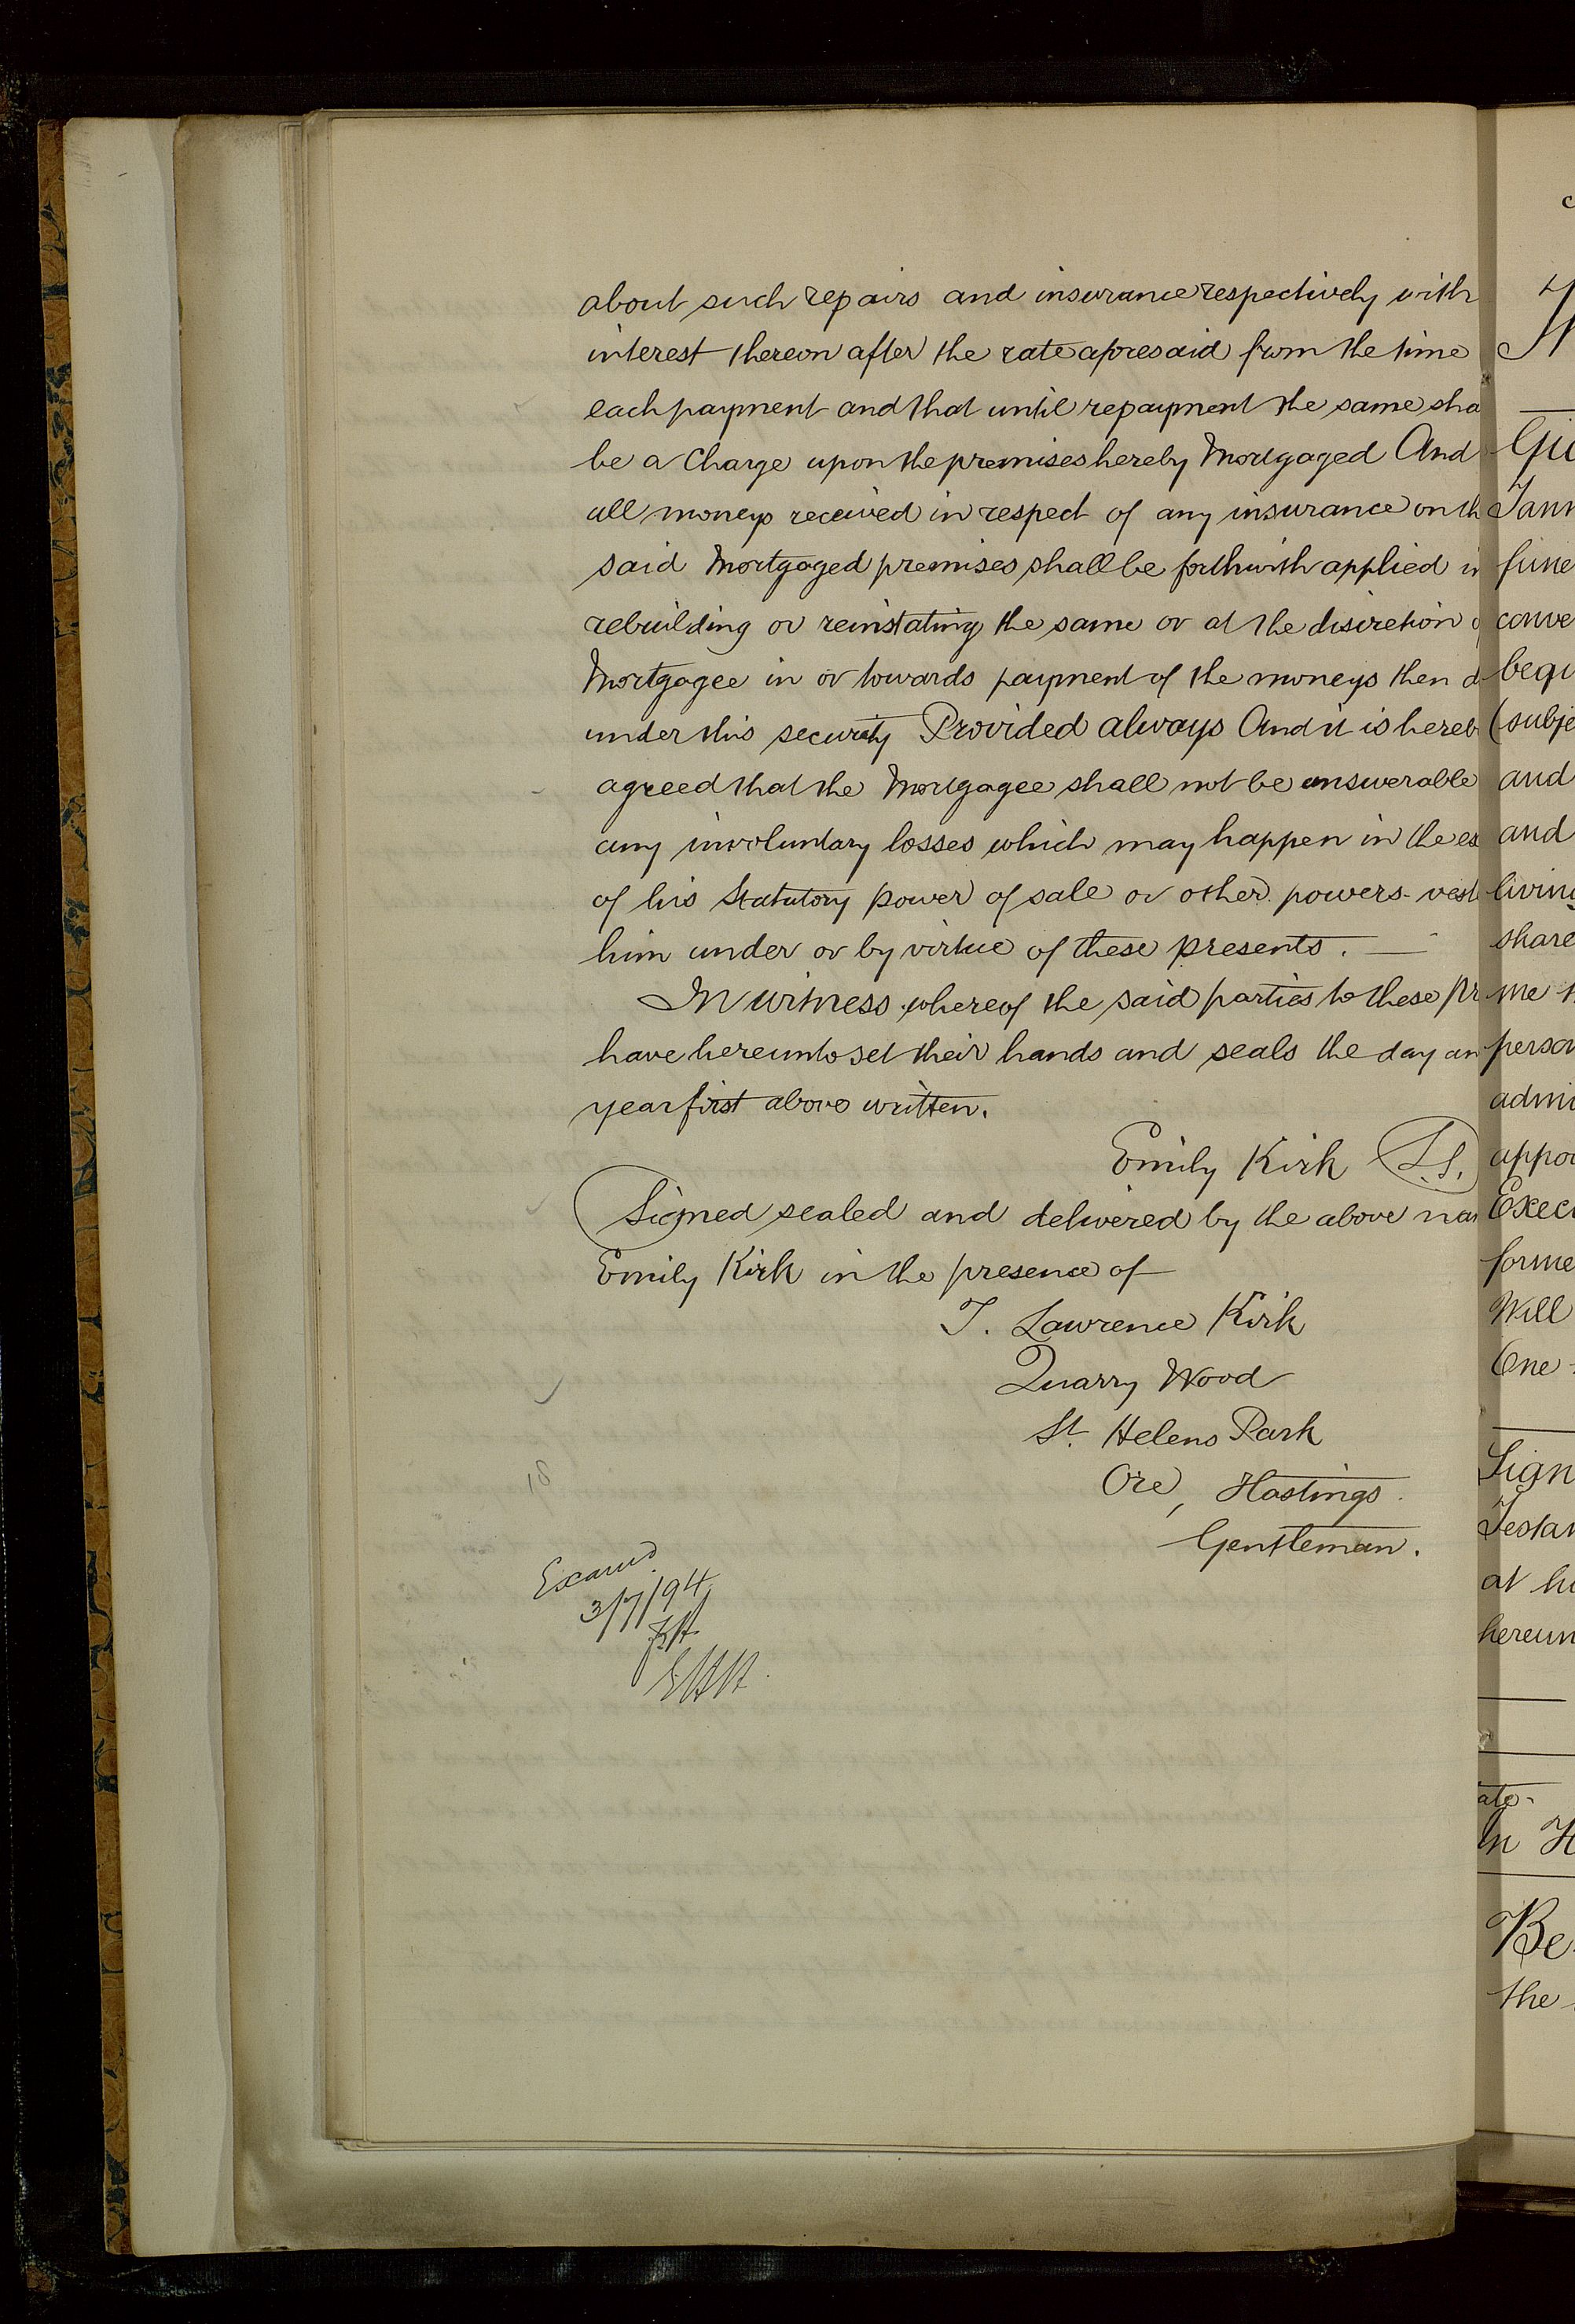 about such repairs and insurance respectively with
interest thereon after the rate aforesaid from the time
each payment and that until repayment the same sha
be a Charge upon the premises hereby Mortgaged And
all moneys received in respect of any insurance on th
said Mortgaged premises shall be forthwith applied in
rebuilding or reinstating the same or at the discretion o
Mortgagee in or towards payment of the moneys then d
under this security Provided always And it is hereb
agreed that the Mortgagee shall not be answerable
any involuntary losses which may happen in the ex
of his Statutory power of sale or other powers vest
him under or by virtue of these presents.
In witness whereof the said parties to these pr
have hereunto set their hands and seals the day an
year first above written.
Emily Kirk L.S.
Signed sealed and delivered by the above nam
Emily Kirk in the presence of
T. Lawrence Kirk
Quarry Wood
St. Helens Park
Ore, Hastings.
Gentleman.
18
Examd.
3/7/94
EHH.
Giv
Jann
fune
conve
bequ
(subje
and
and
living
share
me
person
admi
appoi
Execu
forme
Will
One
Sign
Testam
at hi
hereun
ate
In H
Be
the